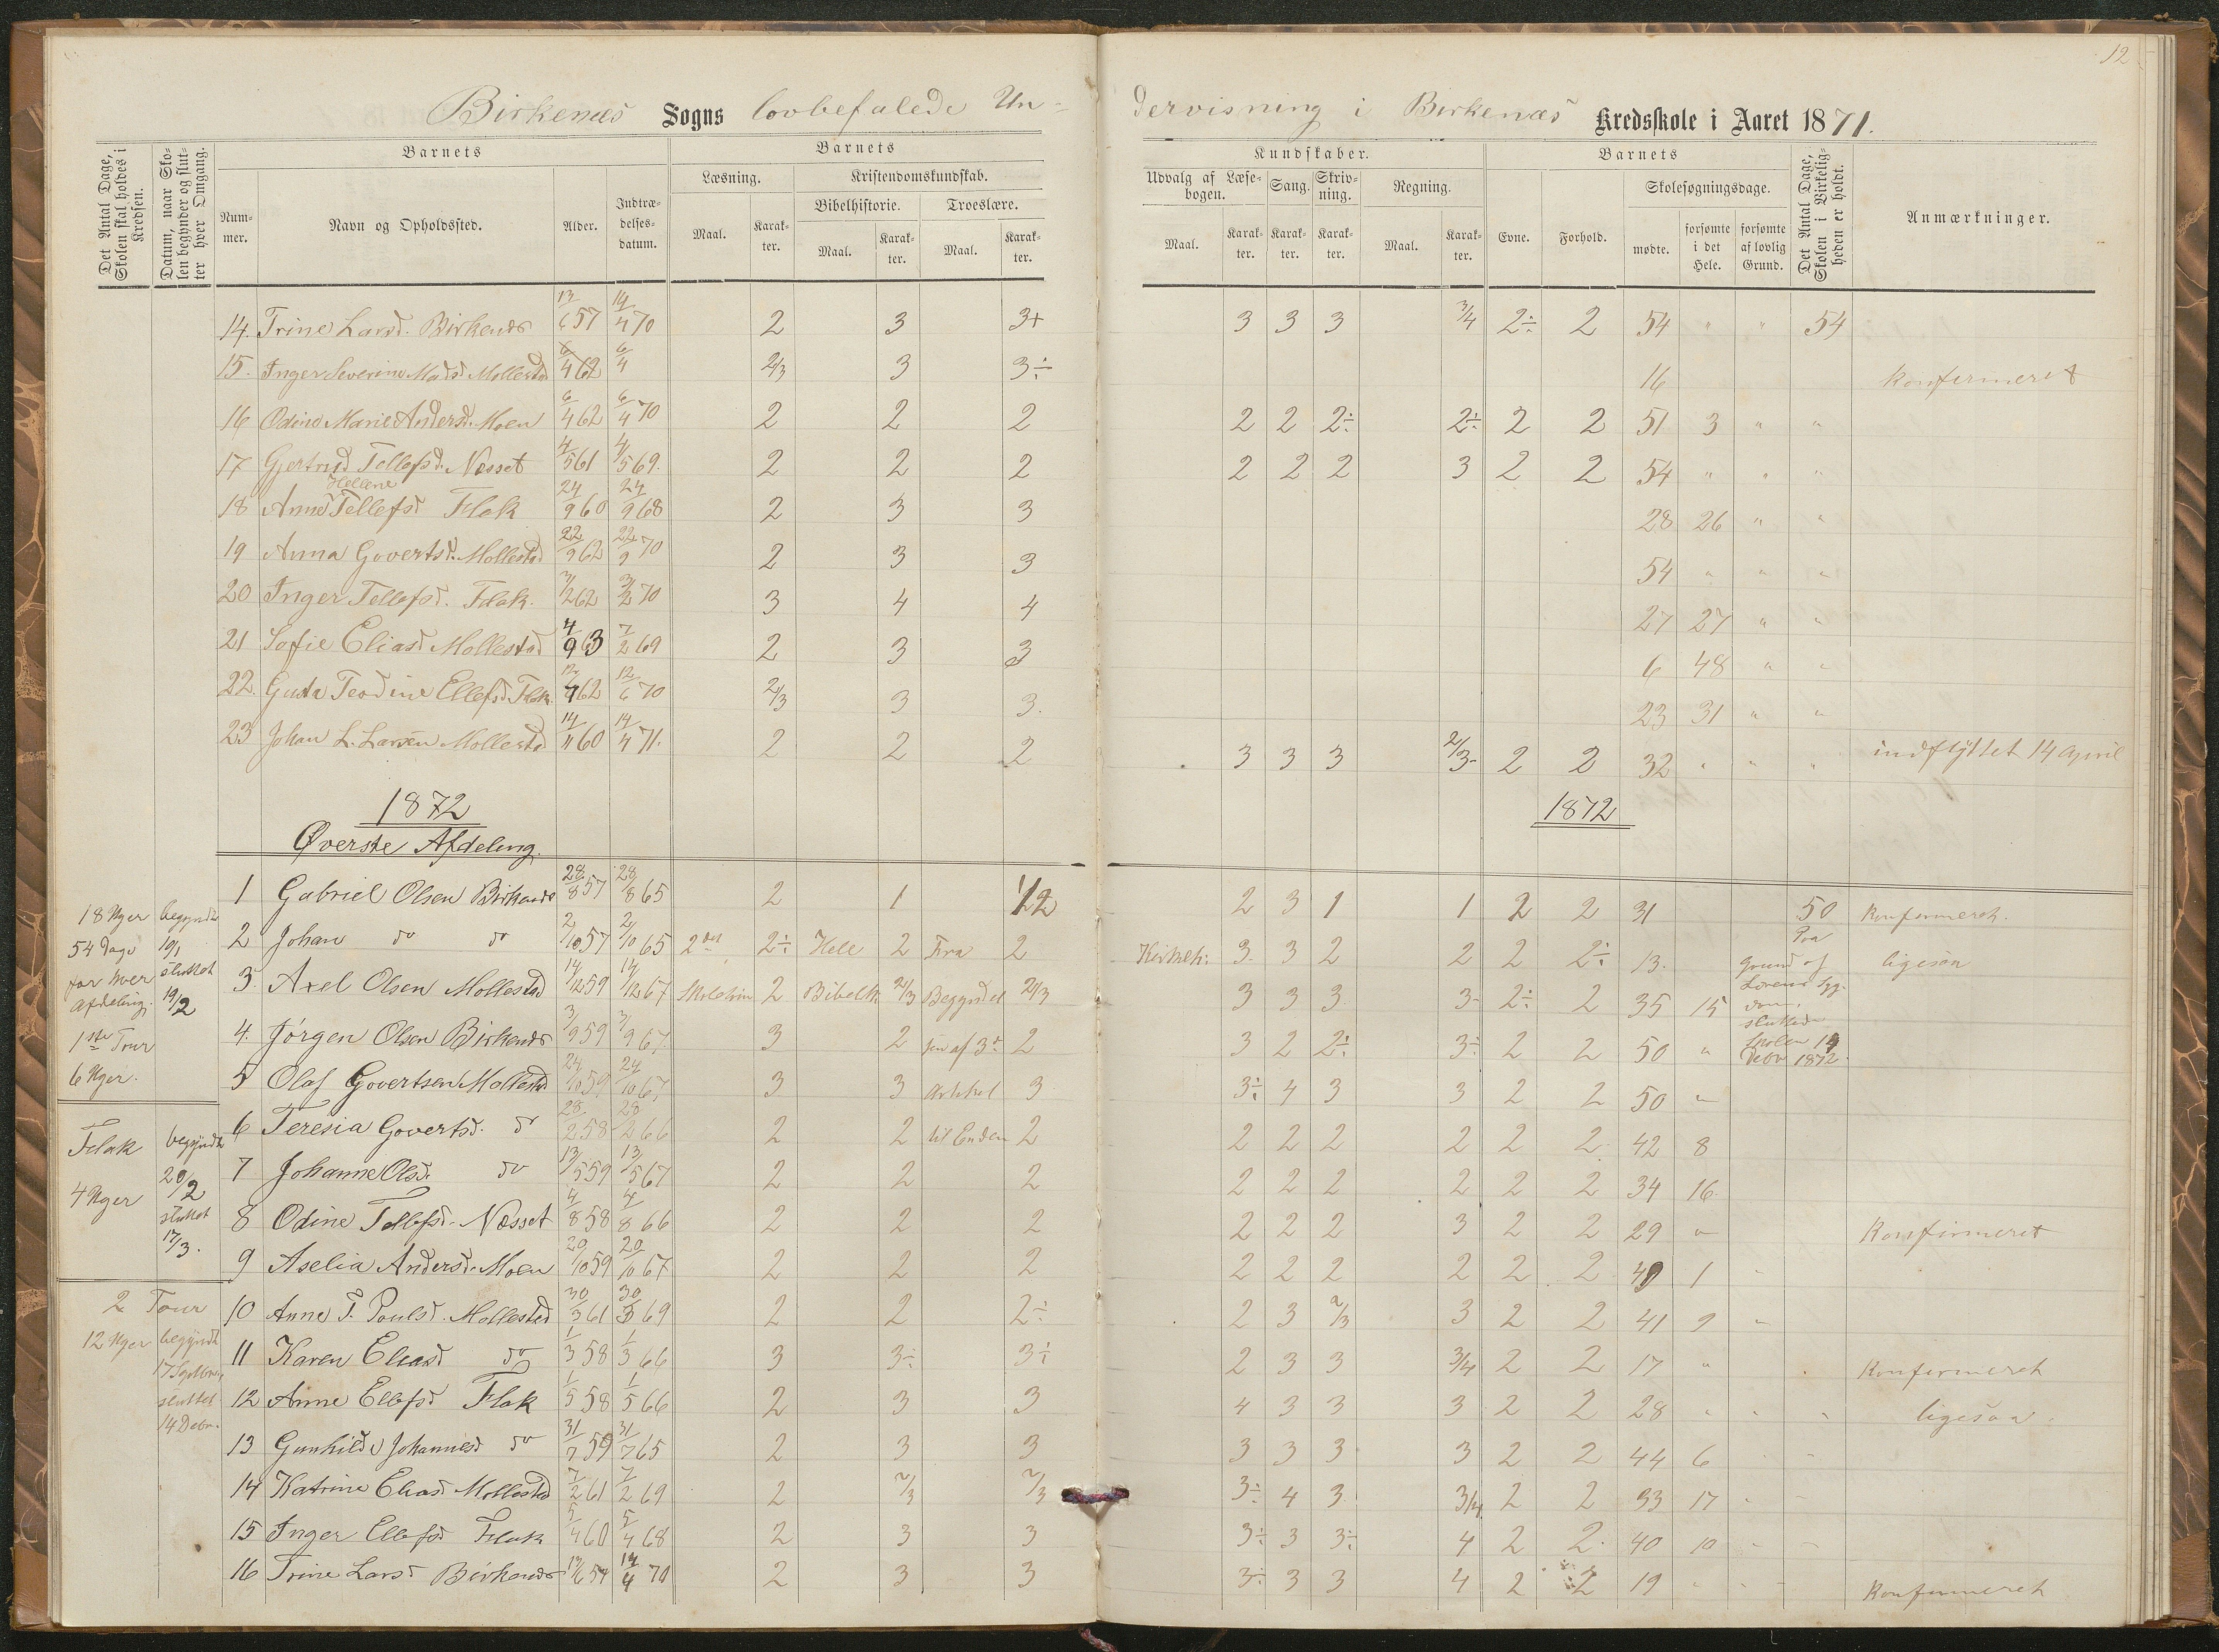 12
Birkenæs Sogns lovbefalede Un-
dervisning i Birkenæs Kredsskole i Aaret 1871.
Det Antal Dage, Skolen skal holdes i Kredsen.
Datum, naar Skolen begynder og slutter hver Omgang.
Nummer.
Barnets
Navn og Opholdssted.
Alder.
Indtrædelsesdatum.
Barnets
Læsning.
Maal. Karakter.
Kristendomskundskab.
Bibelhistorie.
Maal. Karakter.
Troeslære.
Maal. Karakter.
Kundskaber.
Udvalg af Læsebogen.
Maal. Karakter.
Sang. Karakter.
Skrivning. Karakter.
Regning.
Maal. Karakter.
Barnets
Evne. Forhold.
Skolesøgningsdage.
mødte. forsømte i det Hele. forsømte af lovlig Grund.
Det Antal Dage, Skolen i Virkeligheden er holdt.
Anmærkninger.
14. Trine Larsd. Birkenæs 13/6 57 14/4 70 2 3 3+ 3 3 3 3/4 2÷ 2 54 " " 54
15. Inger Severine Madsd. Mollestad 6/4 62 6/4 2/3 3 3÷ 16 Konfirmeret
16 Odine Marie Andersd. Moen 6/4 62 6/4 70 2 2 2 2 2 2÷ 2÷ 2 2 51 3 " "
17 Gjertrud Tellefsd. Næsset 4/5 61 4/5 69. 2 2 2 2 2 2 3 2 2 54 " " "
Hellene
18 Anne Tellefsd Flak 24/9 60 24/9 68 2 3 3 28 26 " "
19 Anna Govertsd. Mollestad 22/9 62 22/9 70 2 3 3 54 " " "
20 Inger Tellefsd. Flak. 3/2 62 3/2 70 3 4 4 27 27 " "
21 Sofie Eliasd Mollestad 4/9 63 7/2 69 2 3 3 6 48 " "
22. Gusta Teodine Ellefsd Flak. 12/4 62 12/6 70 2/3 3 3. 23 31 " "
23 Johan L. Larsen Mollestad 14/11 60 14/4 71. 2 2 2 3 3 3 2/3 2 2 32 " " " indflyttet 14 April
1872
1872
Øverste Afdeling.
18 Uger
54 Dage
for hver
Afdeling.
1ste Tour
6 Uger.
begyndt
10/1
sluttet
19/2
Flak
4 Uger
begyndt
20/2
sluttet
17/3.
2 Tour
12 Uger
begyndt
17 Septbr
sluttet
14 Debr.
1 Gabriel Olsen Birkenæs 28/8 57 28/8 65 2 1 1/2 2 3 1 1 2 2 31 50 Konfirmeret.
2 Johan do do 2/10 57 2/10 65 2det 2÷ Hele 2 Fra 2 3. 3 2 2 2 2÷ 13. ligesaa
3. Axel Olsen Mollestad 14/12 59 14/12 67 2 Bibelh. 2/3 Begyndel 2/3 3 3 3 3 2÷ 2 35 15
Paa
Grund af
Lærerens Syg-
dom
sluttede
Skolen 14
Debr 1872.
4. Jørgen Olsen Birkenæs 3/9 59 3/9 67 3 2 sen af 3die 2 3 2 2÷ 3÷ 2 2 50 "
5 Olaf Govertsen Mollestad 24/10 59 24/10 67 3 3 Artikel 3 3÷ 4 3 3 2 2 50 "
6 Teresia Govertsd. do 28/2 58 28/2 66 2 2 til Enden 2 2 2 2 2 2 2 42 8
7 Johanne Olsd. do 13/5 59 13/5 67 2 2 2 2 2 2 2 2 2 34 16
8 Odine Tellefsd. Næsset 4/8 58 4/8 66 2 2 2 2 2 2 3 2 2 29 " Konfirmeret
9 Aselia Andersd. Moen 20/10 59 20/10 67 2 2 2 2 2 2 2 2 2 49 1 "
10 Anne T. Poulsd. Mollestad 30/3 61 30/3 69 2 2 2÷ 2 3 2/3 3 2 2 41 9 "
11 Karen Eliasd do 1/3 58 1/3 66 3 3÷ 3÷ 2 3 3 3/4 2 2 17 " Konfirmeret
12 Anne Ellefsd Flak 1/5 58 1/5 66 2 3 3 4 3 3 3 2 2 28 " " " ligesaa.
13 Gunhilde Johannesd do 31/7 59 31/7 65 2 3 3 3 3 3 3 2 2 44 6 " "
14 Katrine Eliasd. Mollestad 7/2 61 7/2 69 2 2/3 2/3 3÷ 4 3 3/4 2 2 33 17 " "
15 Inger Ellefsd Flak 5/4 60 5/4 68 2 3 3 3÷ 3 3÷ 4 2 2 40 10 " "
16 Trine Larsd Birkenæs 13/6 57 14/4 70 2 3 3 3÷ 3 3 4 2 2 19 " " " Konfirmeret